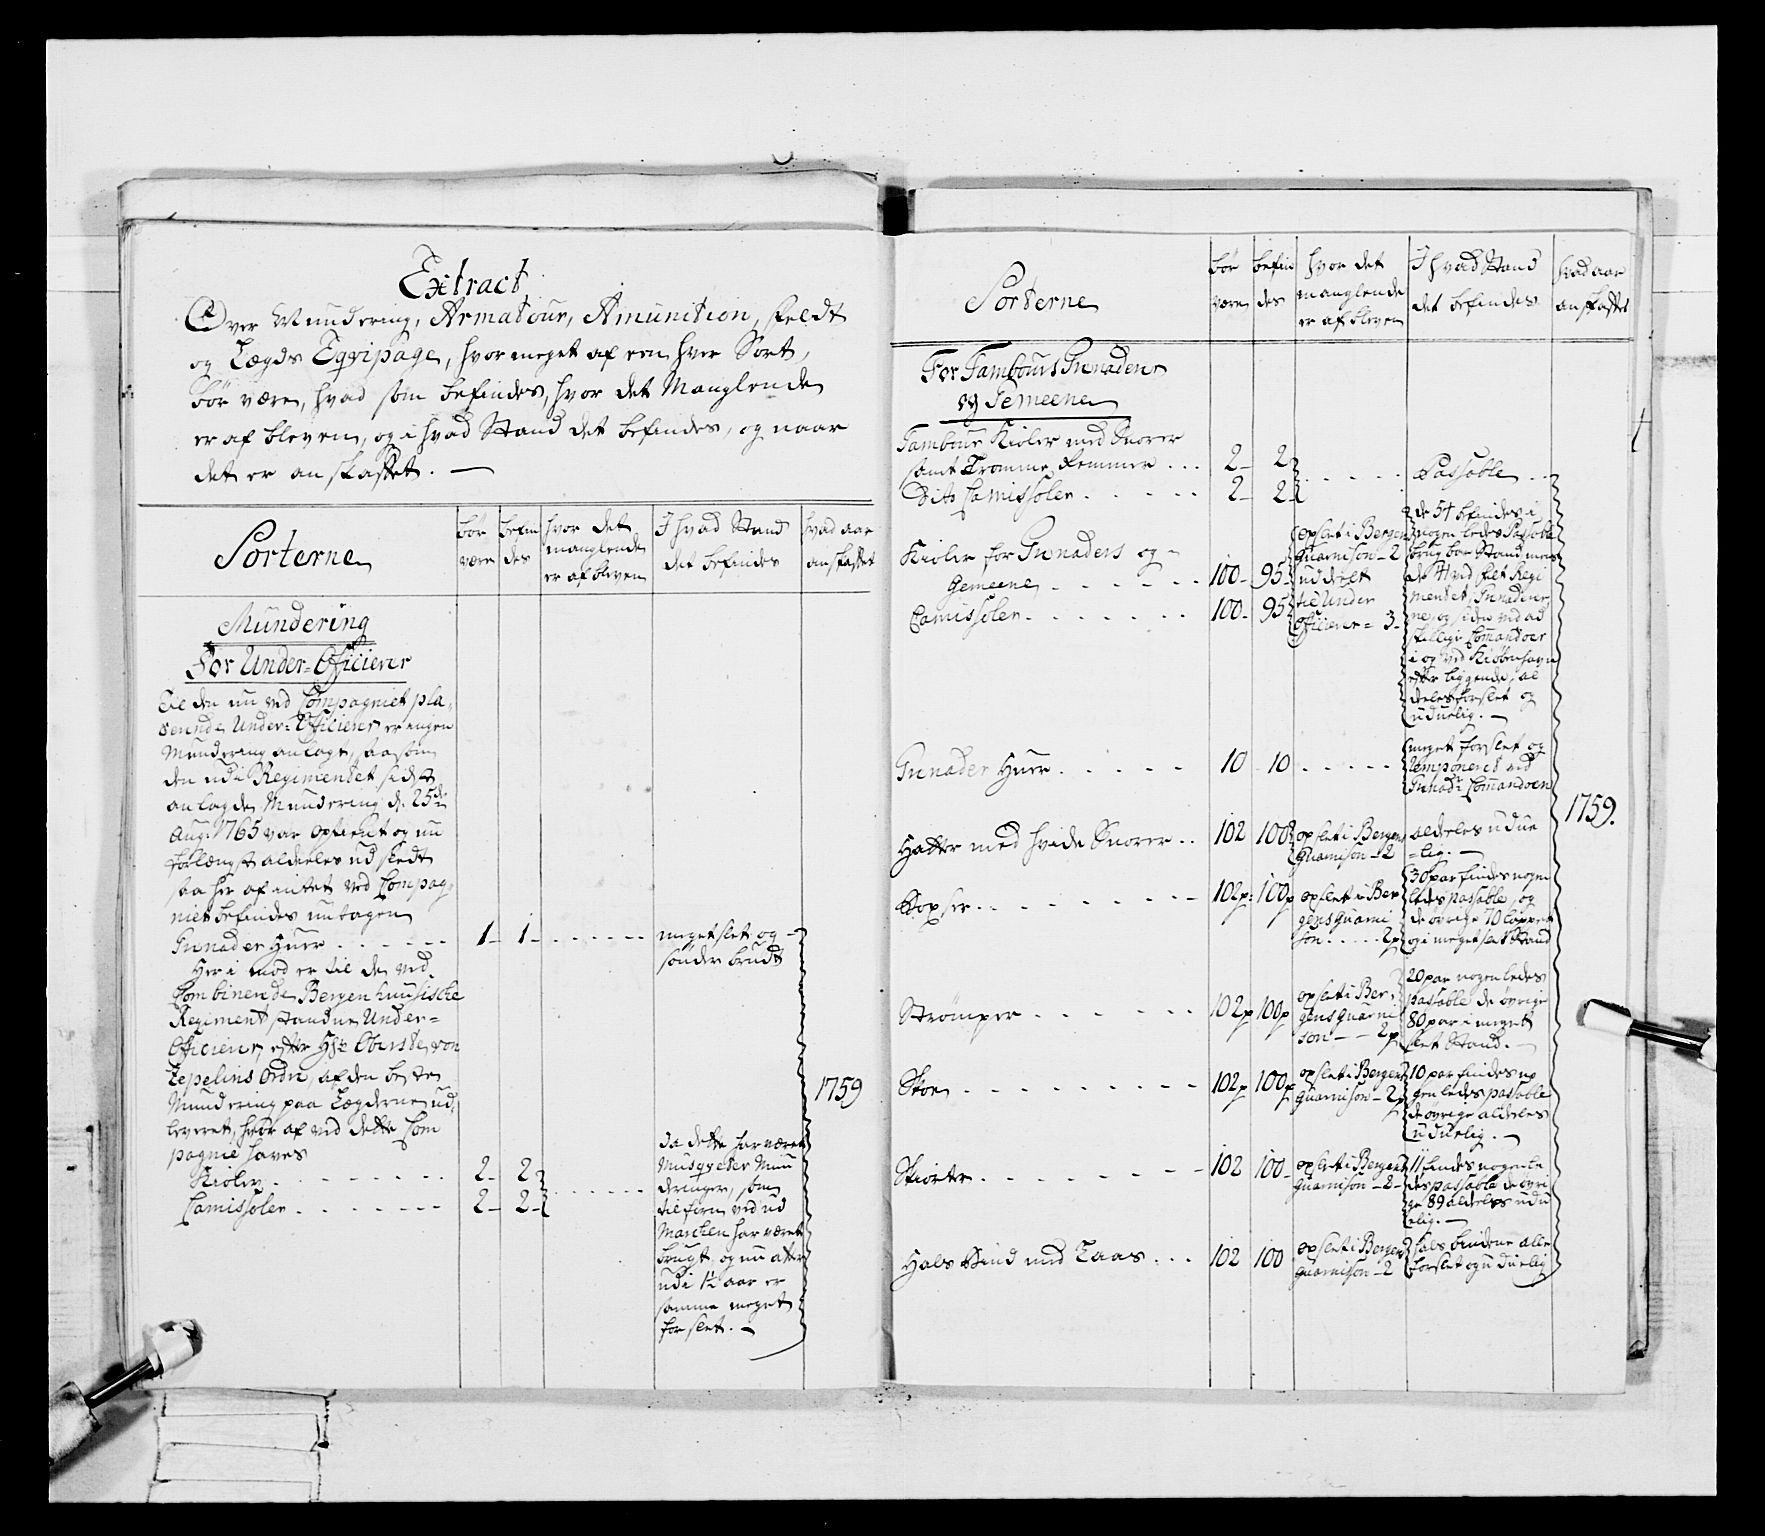 Extract
Over Mundering, Armatour, Amunition, Feldt
og Lægds Eqvipage, hvor meget af een hver Sort,
bør være, hvad som befindes, hvor det Manglende
er af bleven, og i hvad Stand det befindes, og naar
det er anskaffet. —
Sorterne
bør være
befindes
hvor det manglende er af bleven
I hvad Stand det befindes
hvad aar anskaffet
Mundering
For Under-Officierer
Til den nu ved Compagniet pla-
cerende Under-Officierer er ingen
Mundering anlagt, saasom
den udi Regimentet sidst
anlagde Mundering d. 25de
Aug: 1765 var
og nu
forlængst alderles udsledt
saa her af intet ved Compag-
niet befindes undtagen
Grenader Huer . . . . . . 1 - 1 - . . . . . . meget slet og
sønder brudt
Her i mod er til de ved
Combinerede Bergenhuusische
Regiment staaende Under-
Officierer, efter Hr. Oberste von
Zepelins Ordre, af den beste
Mundering paa Lægderne ud-
leveret, hvor af ved dette Com
pagnie haves
Kioler . . . . . . . . 2 - 2
Camissoler . . . . . . . 2 - 2 - . . . . . .
da dette har været
Musqveter Mun
deringer, som
tilforn ved ud
Marchen har været
brugt, og nu atter
udi 1½ aar er
samme meget
forslet. —
1759
Sorterne
bør være
befindes
hvor det manglende er af bleven
I hvad Stand det befindes
hvad aar anskaffet
For Tambours Grenaderer
og Gemeene
Tambour Kioler med Snorer
samt Tromme Remmer . . . 2 - 2
Dito Camissoler . . . . . 2 - 2 - . . . . . Passable . .
Kioler for Grenaders og
Gemeene . . . . . . 100 - 95 -
Camissoler . . . . . . 100 - 95
opslet i Bergens
Guarnison - 2
uddelt
til Under
Officierer = 3 -
de 54 befindes i
nogenledes Passable
brugbar Stand, mens
de 41 ved
Regi
mentet, Grenaderer
ne, og siden ved ad
skellige Comandoer
i og ved Kiøbenhavn
efter liggende, al
deeles forslet og
uduelig. —
Grenader Huer . . . . . 10 - 10 . . . . . meget forslet og
ramponered ved
Grenadr Comandoen
Hatter med hvide Snorer . . 102 100 opslet i Bergens
Guarnison - 2
alderles udue
=lig. —
Boxser . . . . . . . . 102p: 100p opslet i Ber
gens Guarni
son . . . . . 2p
30 par findes nogen
ledes passable, og
de øvrige 70 lappert
og i meget slet Stand
Strømper . . . . . . 102p 100p opslet i Ber-
gens Guarni
son - - 2p
20 par nogenledes
passable de øvrige
80 par i meget
slet Stand. —
Skoe . . . . . . . . . 102p 100p opslet i Bergens
Guarnison - 2p
10 par findes no
genledes passable
de øvrige alderles
uduelig. —
Skiorter . . . . . . . . 102 100 - opslet i Bergens
Guarnison - 2 -
11 findes nogenle
des passable de øvri
ge 89 alderles udu
elig. —
Hals Bind med Laas . . . 102 100 opslet i Bergens
Guarnison - 2
hals bindene alle
forslet og uduelig
1759.